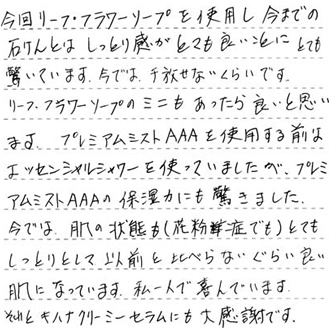 今回リーフ・フラワーソープを使用し今までの
石けんとは しっとり感が とても良いことに とても
驚いています. 今では、手放せないくらいです.
リーフ・フラワーソープのミニも あったら 良いと思い
ます. プレミアムミストAAAを使用する前は
エッセンシャルシャワーを使っていましたが、プレミ
アムミストAAAの 保湿力にも 驚きました.
今では、肌の状態も(花粉症でも)とても
しっとりとして 以前と比べらないぐらい良い
肌になっています. 私一人で喜んでいます.
それと キハナクリーミーセラムにも 大感謝です.